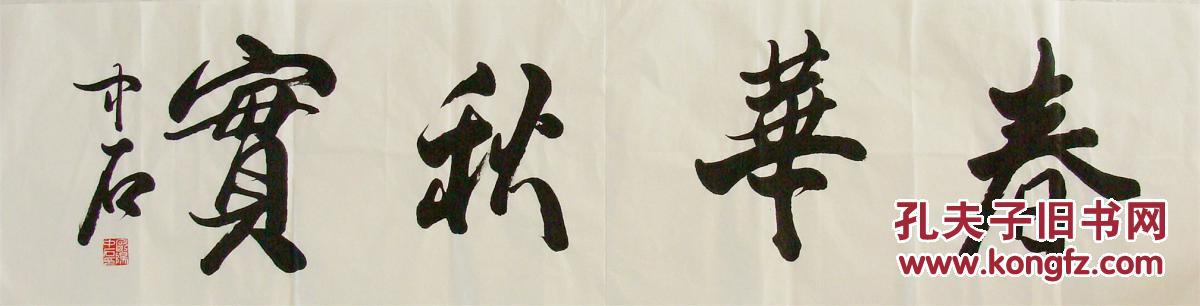 春華秋實
中石
孔夫子旧书网
www.kongfz.com